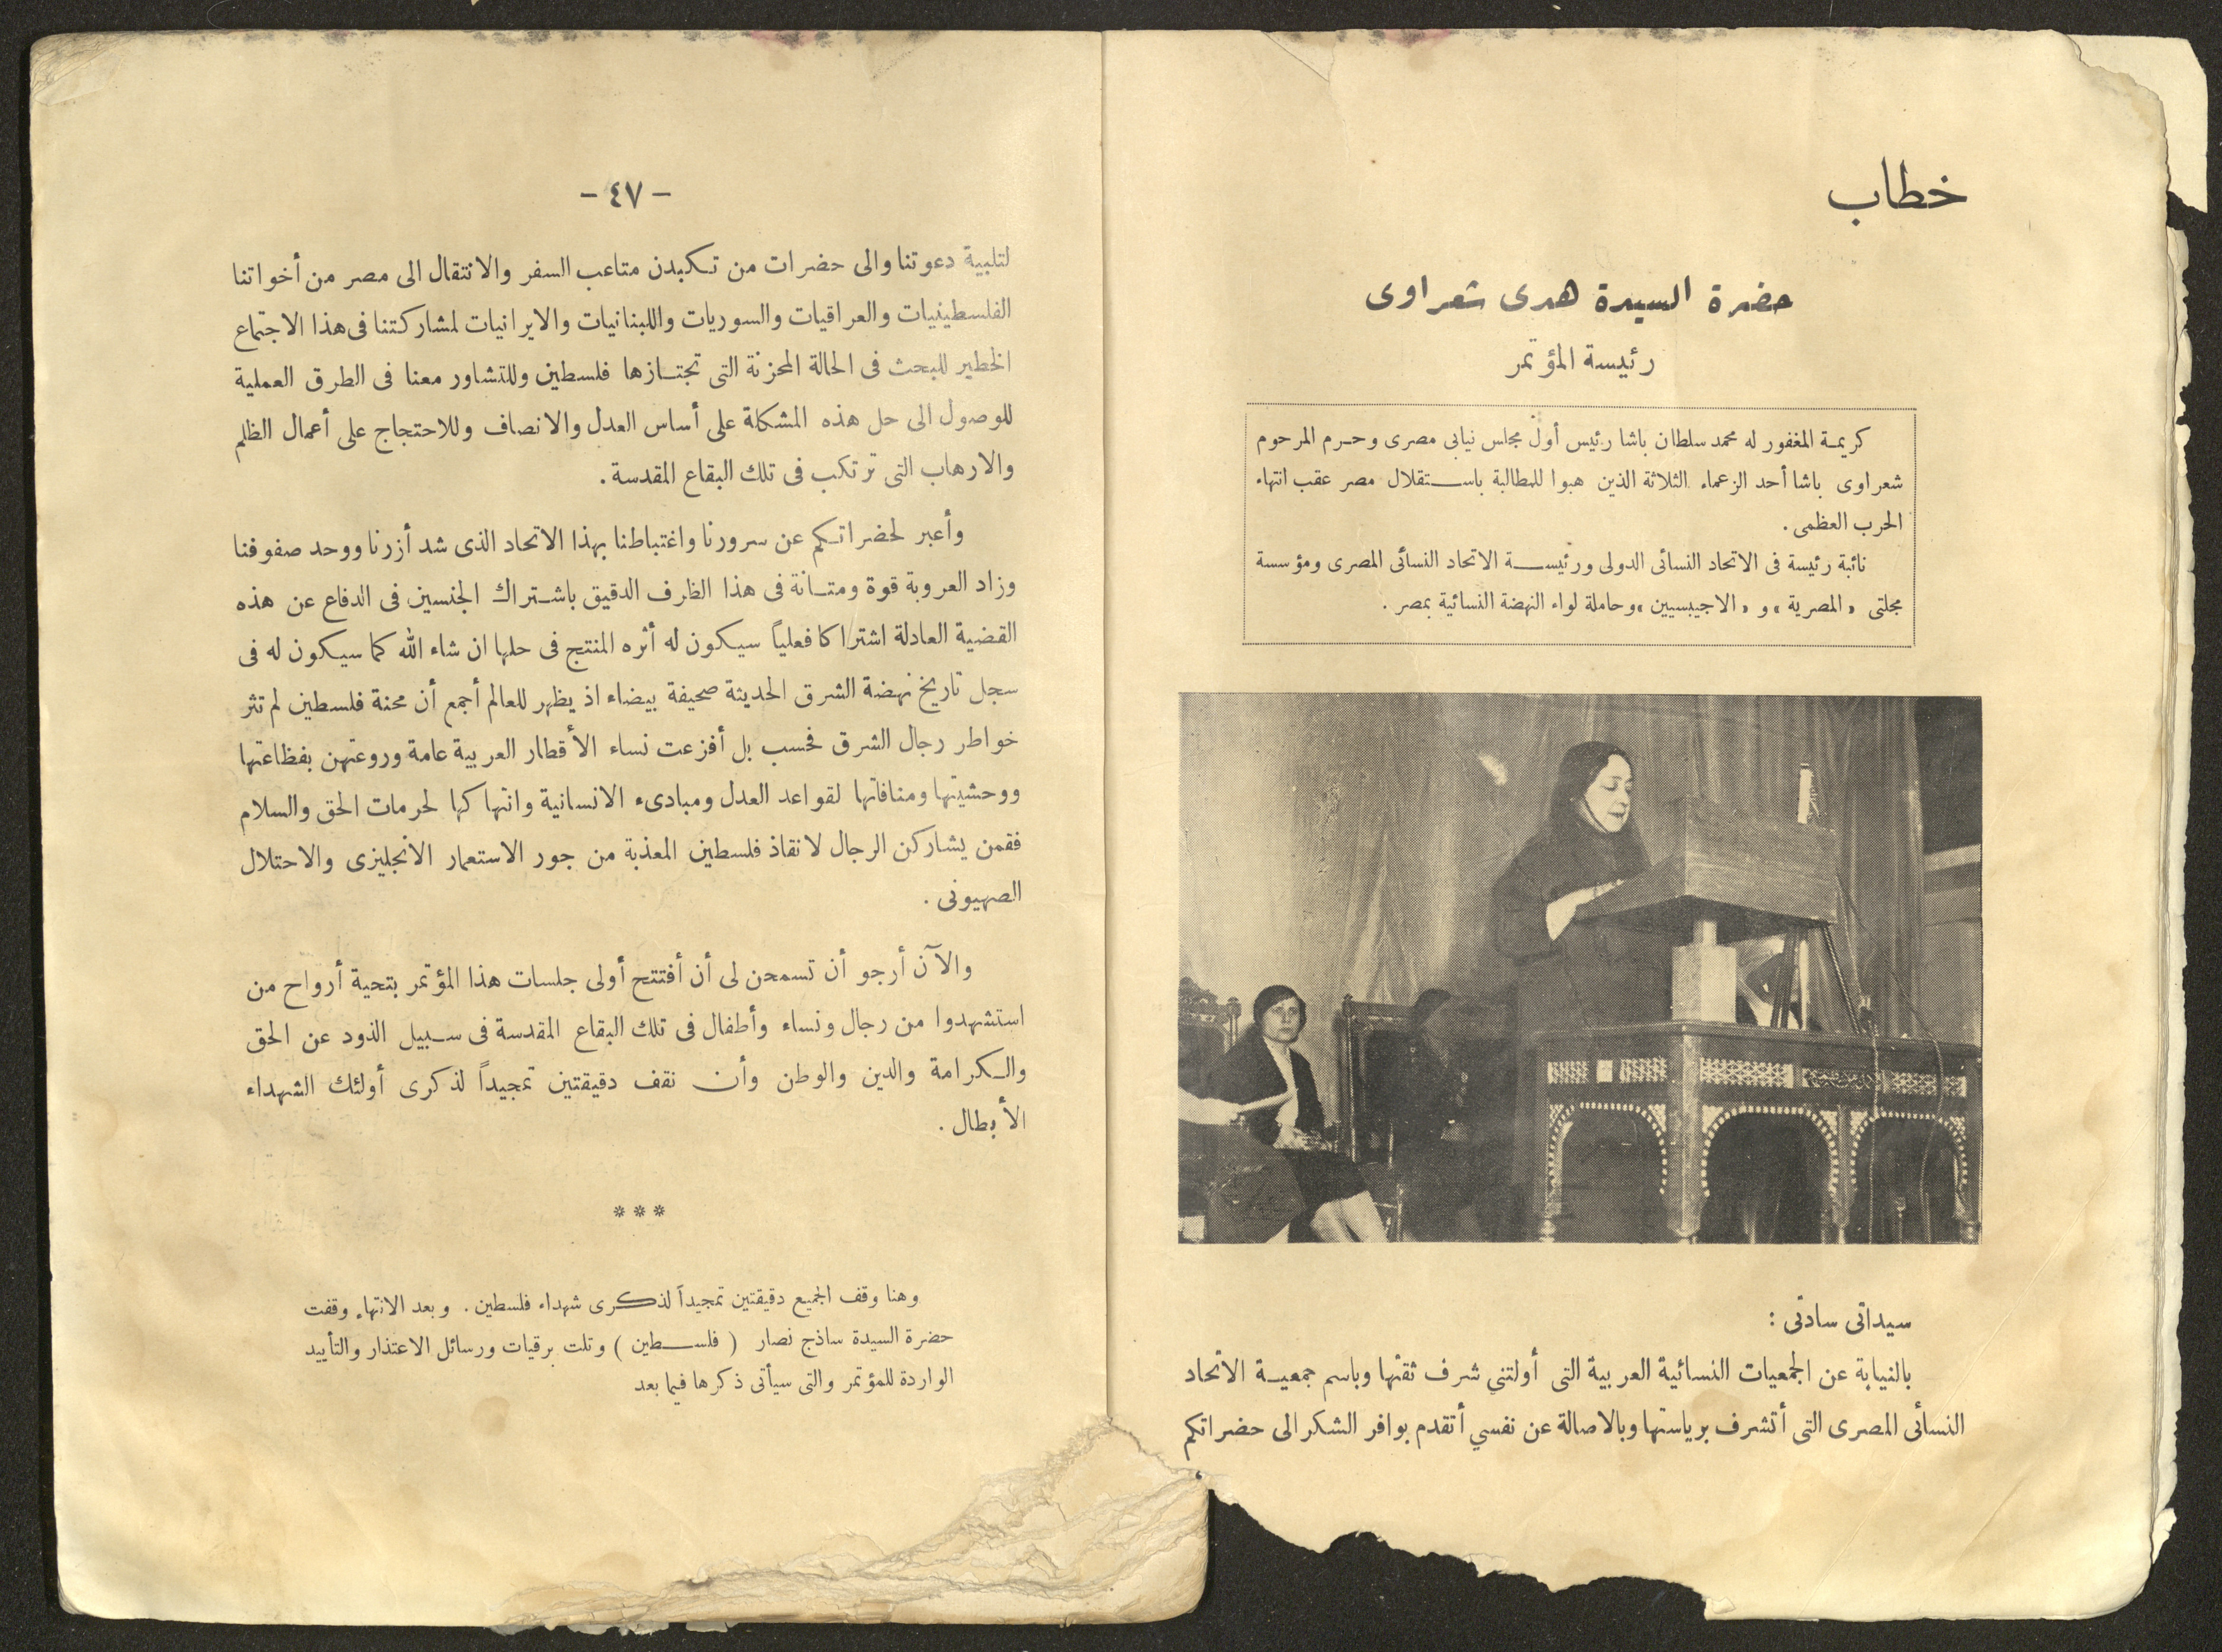 خطاب
حضرة السيدة هدى شعراوى
رئيسة المؤتمر
كريمـة المغفور له محمد سلطان باشا رئيس أول مجلس نيابى مصرى وحـرم المرحوم
شعراوى باشا أحد الزعماء الثلاثة الذين هبوا للمطالبة باستقلال مصر عقب انتهاء
الحرب العظمى .
نائبة رئيسة فى الاتحاد النسائى الدولى ورئيسة الاتحاد النسائى المصرى ومؤسسة
مجلتى « المصرية » و « الاجيبسيين » وحاملة لواء النهضة النسائية بمصر .
سيداتى سادتى :
بالنيابة عن الجمعيات النسائية العربية التى أولتني شرف ثقتها وباسم جمعيـة الاتحاد
النسائى المصرى التى أتشرف برياستها وبالاصالة عن نفسي أتقدم بوافر الشكر الى حضراتكم
– ٤٧ –
لتلبية دعوتنا والى حضرات من تكبدن متاعب السفر والانتقال الى مصر من أخواتنا
الفلسطينيات والعراقيات والسوريات واللبنانيات والايرانيات لمشاركتنا فى هذا الاجتماع
الخطير للبحث فى الحالة المحزنة التى تجتـازها فلسطين وللتشاور معنا فى الطرق العملية
للوصول الى حل هذه المشكلة على أساس العدل والانصاف وللاحتجاج على أعمال الظلم
والارهاب التى ترتكب فى تلك البقاع المقدسة .
وأعبر لحضراتكم عن سرورنا واغتباطنا بهذا الاتحاد الذى شد أزرنا ووحد صفوفنا
وزاد العروبة قوة ومتـانة فى هذا الظرف الدقيق باشتراك الجنسين فى الدفاع عن هذه
القضية العادلة اشتراكا فعلياً سيكون له أثره المنتج فى حلها ان شاء الله كما سيكون له فى
سجل تاريخ نهضة الشرق الحديثة صحيفة بيضاء اذ يظهر للعالم أجمع أن محنة فلسطين لم تثر
خواطر رجال الشرق فحسب بل أفزعت نساء الأقطار العربية عامة وروعتهن بفظاعتها
ووحشيتها ومنافاتها لقواعد العدل ومبادىء الانسانية وانتهاكها لحرمات الحق والسلام
فقمن يشاركن الرجال لانقاذ فلسطين المعذبة من جور الاستعمار الانجليزى والاحتلال
الصهيونى .
والآن أرجو أن تسمحن لى أن أفتتح أولى جلسات هذا المؤتمر بتحية أرواح من
استشهدوا من رجال ونساء وأطفال فى تلك البقاع المقدسة فى سبيل الذود عن الحق
والكرامة والدين والوطن وأن نقف دقيقتين تمجيداً لذكرى أولئك الشهداء
الأبطال .
* * *
وهنا وقف الجميع دقيقتين تمجيداً لذكرى شهداء فلسطين . وبعد الانتهاء وقفت
حضرة السيدة ساذج نصار ( فلسطين ) وتلت برقيات ورسائل الاعتذار والتأييد
الواردة للمؤتمر والتى سيأتى ذكرها فيما بعد